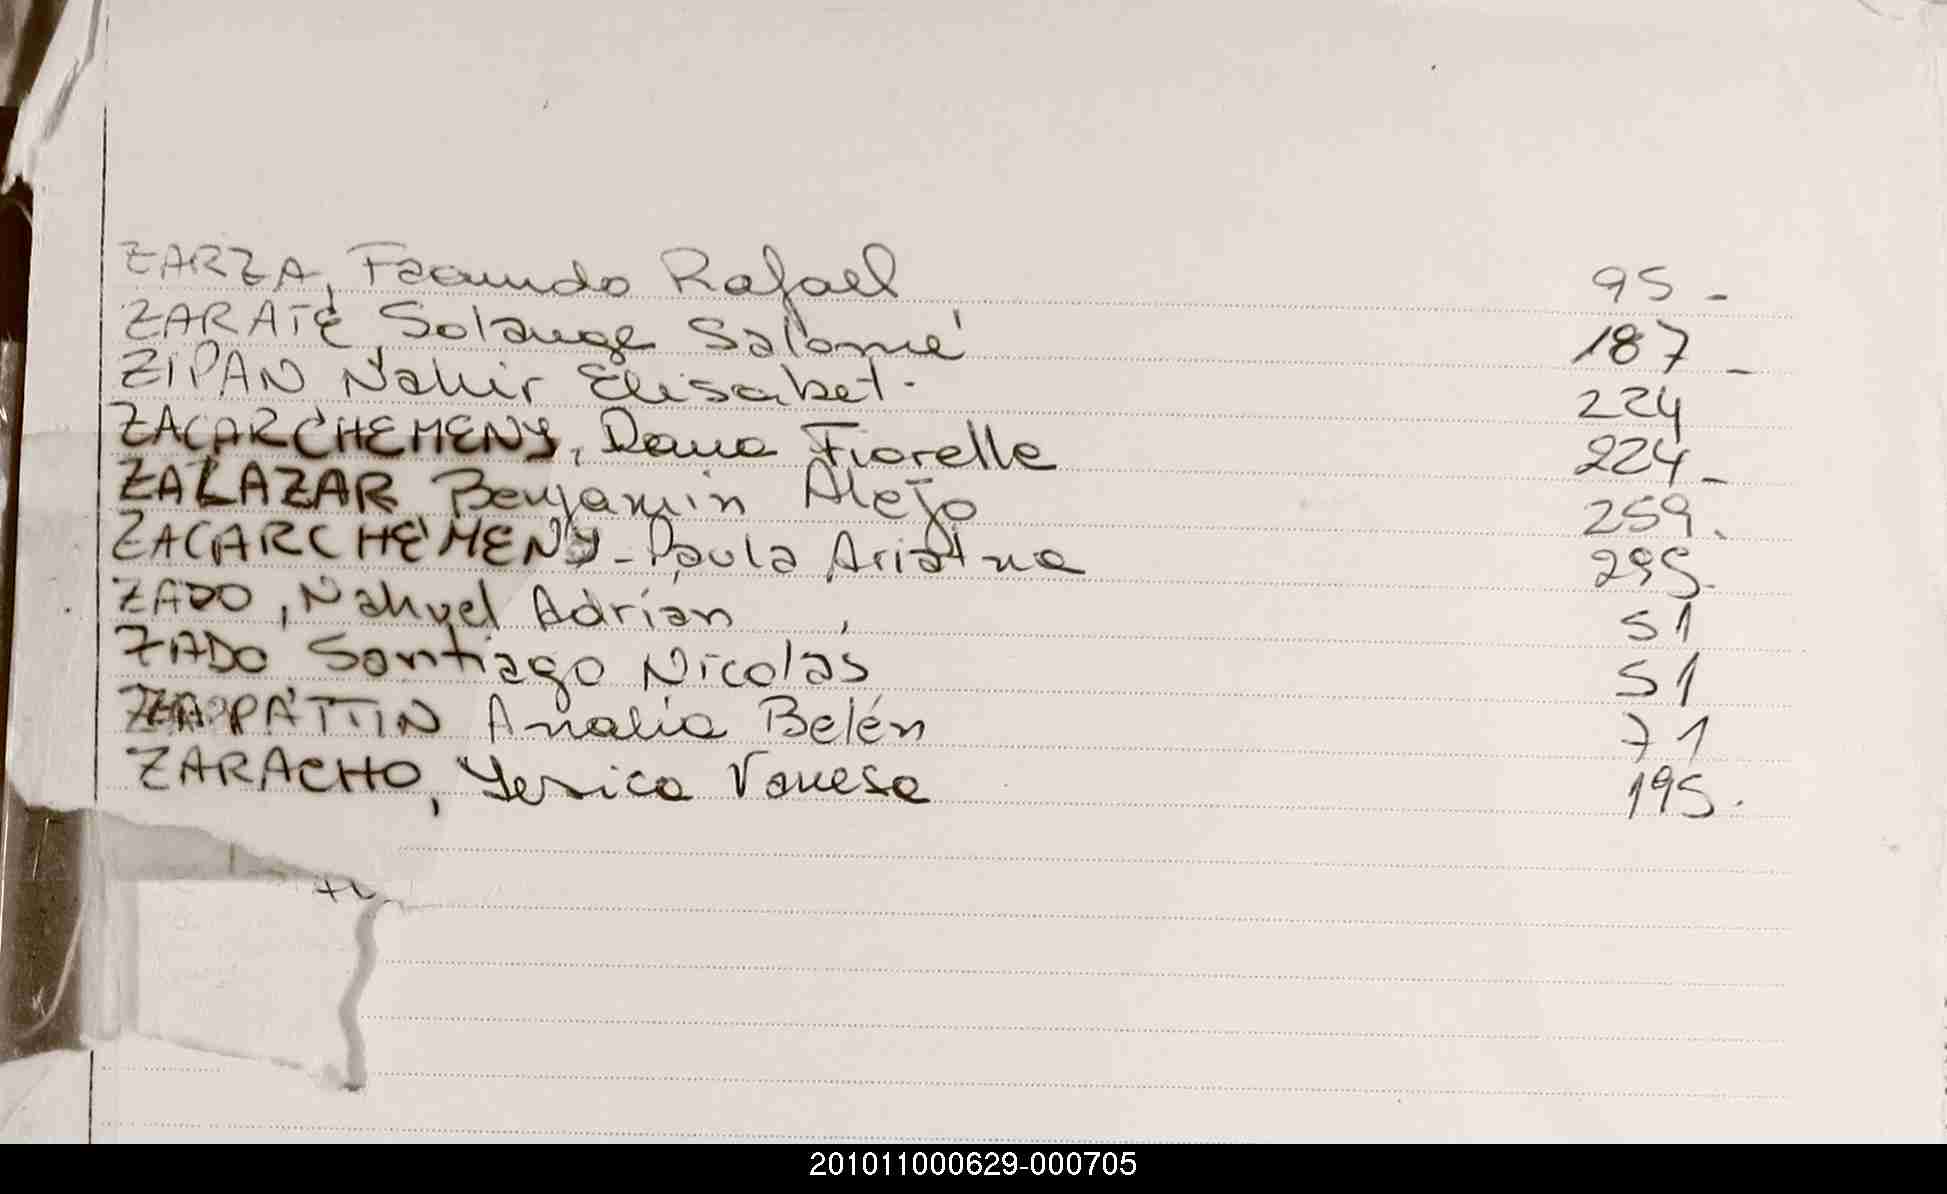 ZARZA, Facundo Rafael 95 -
ZARATE, Solange Salomé 187 -
ZIPAN Nahir Elisabet. 224
ZACARCHEMENY, Dana Fiorella 224 -
ZALAZAR Benjamin Alejo 259.
ZACARCHEMENY - Paula Ariatna 295.
ZADO, Nahuel Adrían 51
ZADO Santiago Nicolás 51
ZAPPATTIN Analía Belén 71
ZARACHO, Yesica Vanesa 195.
201011000629-000705